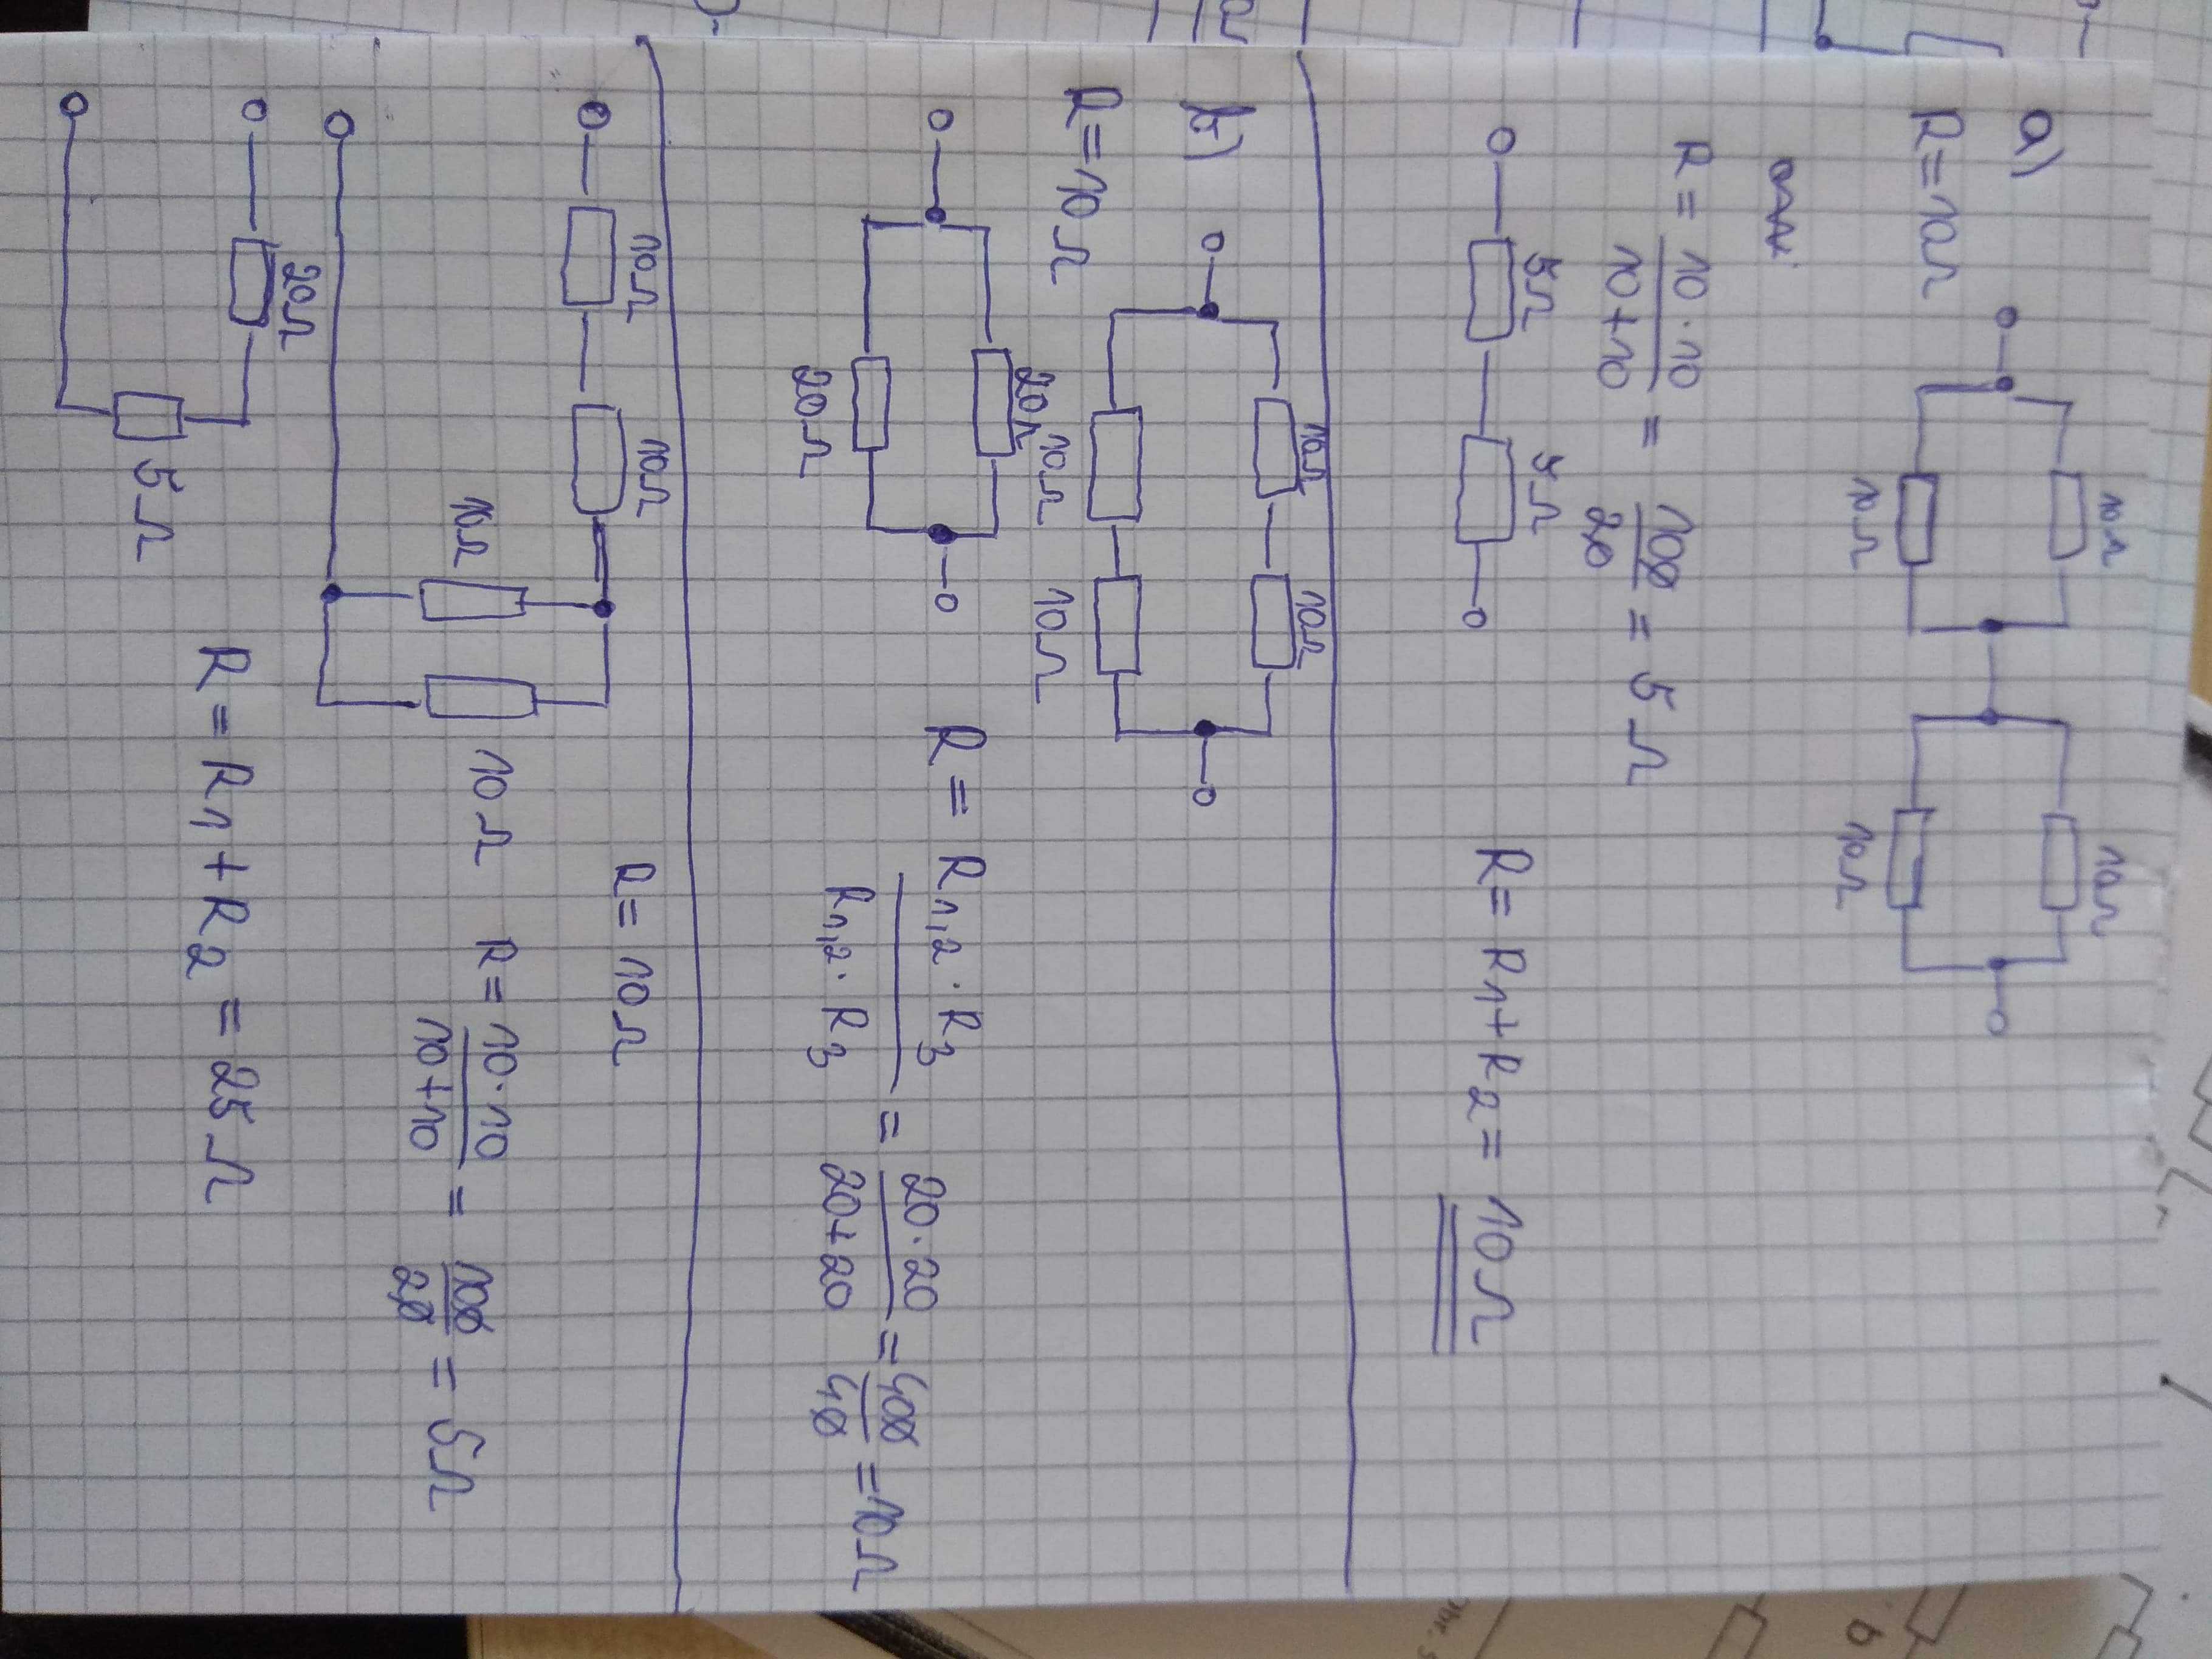 a)
R=10Ω
10Ω 10Ω
10Ω 10Ω
R = 10·10 / 10+10 = 100 / 20 = 5Ω
5Ω 5Ω
R = R1 + R2 = 10Ω
b)
R=10Ω
10Ω 10Ω
10Ω 10Ω
20Ω
20Ω
R = R1,2 · R3 / R1,2 · R3 = 20·20 / 20+20 = 400 / 40 = 10Ω
10Ω 10Ω
R = 10Ω
10Ω 10Ω
R = 10·10 / 10+10 = 100 / 20 = 5Ω
20Ω
5Ω
R = R1 + R2 = 25Ω